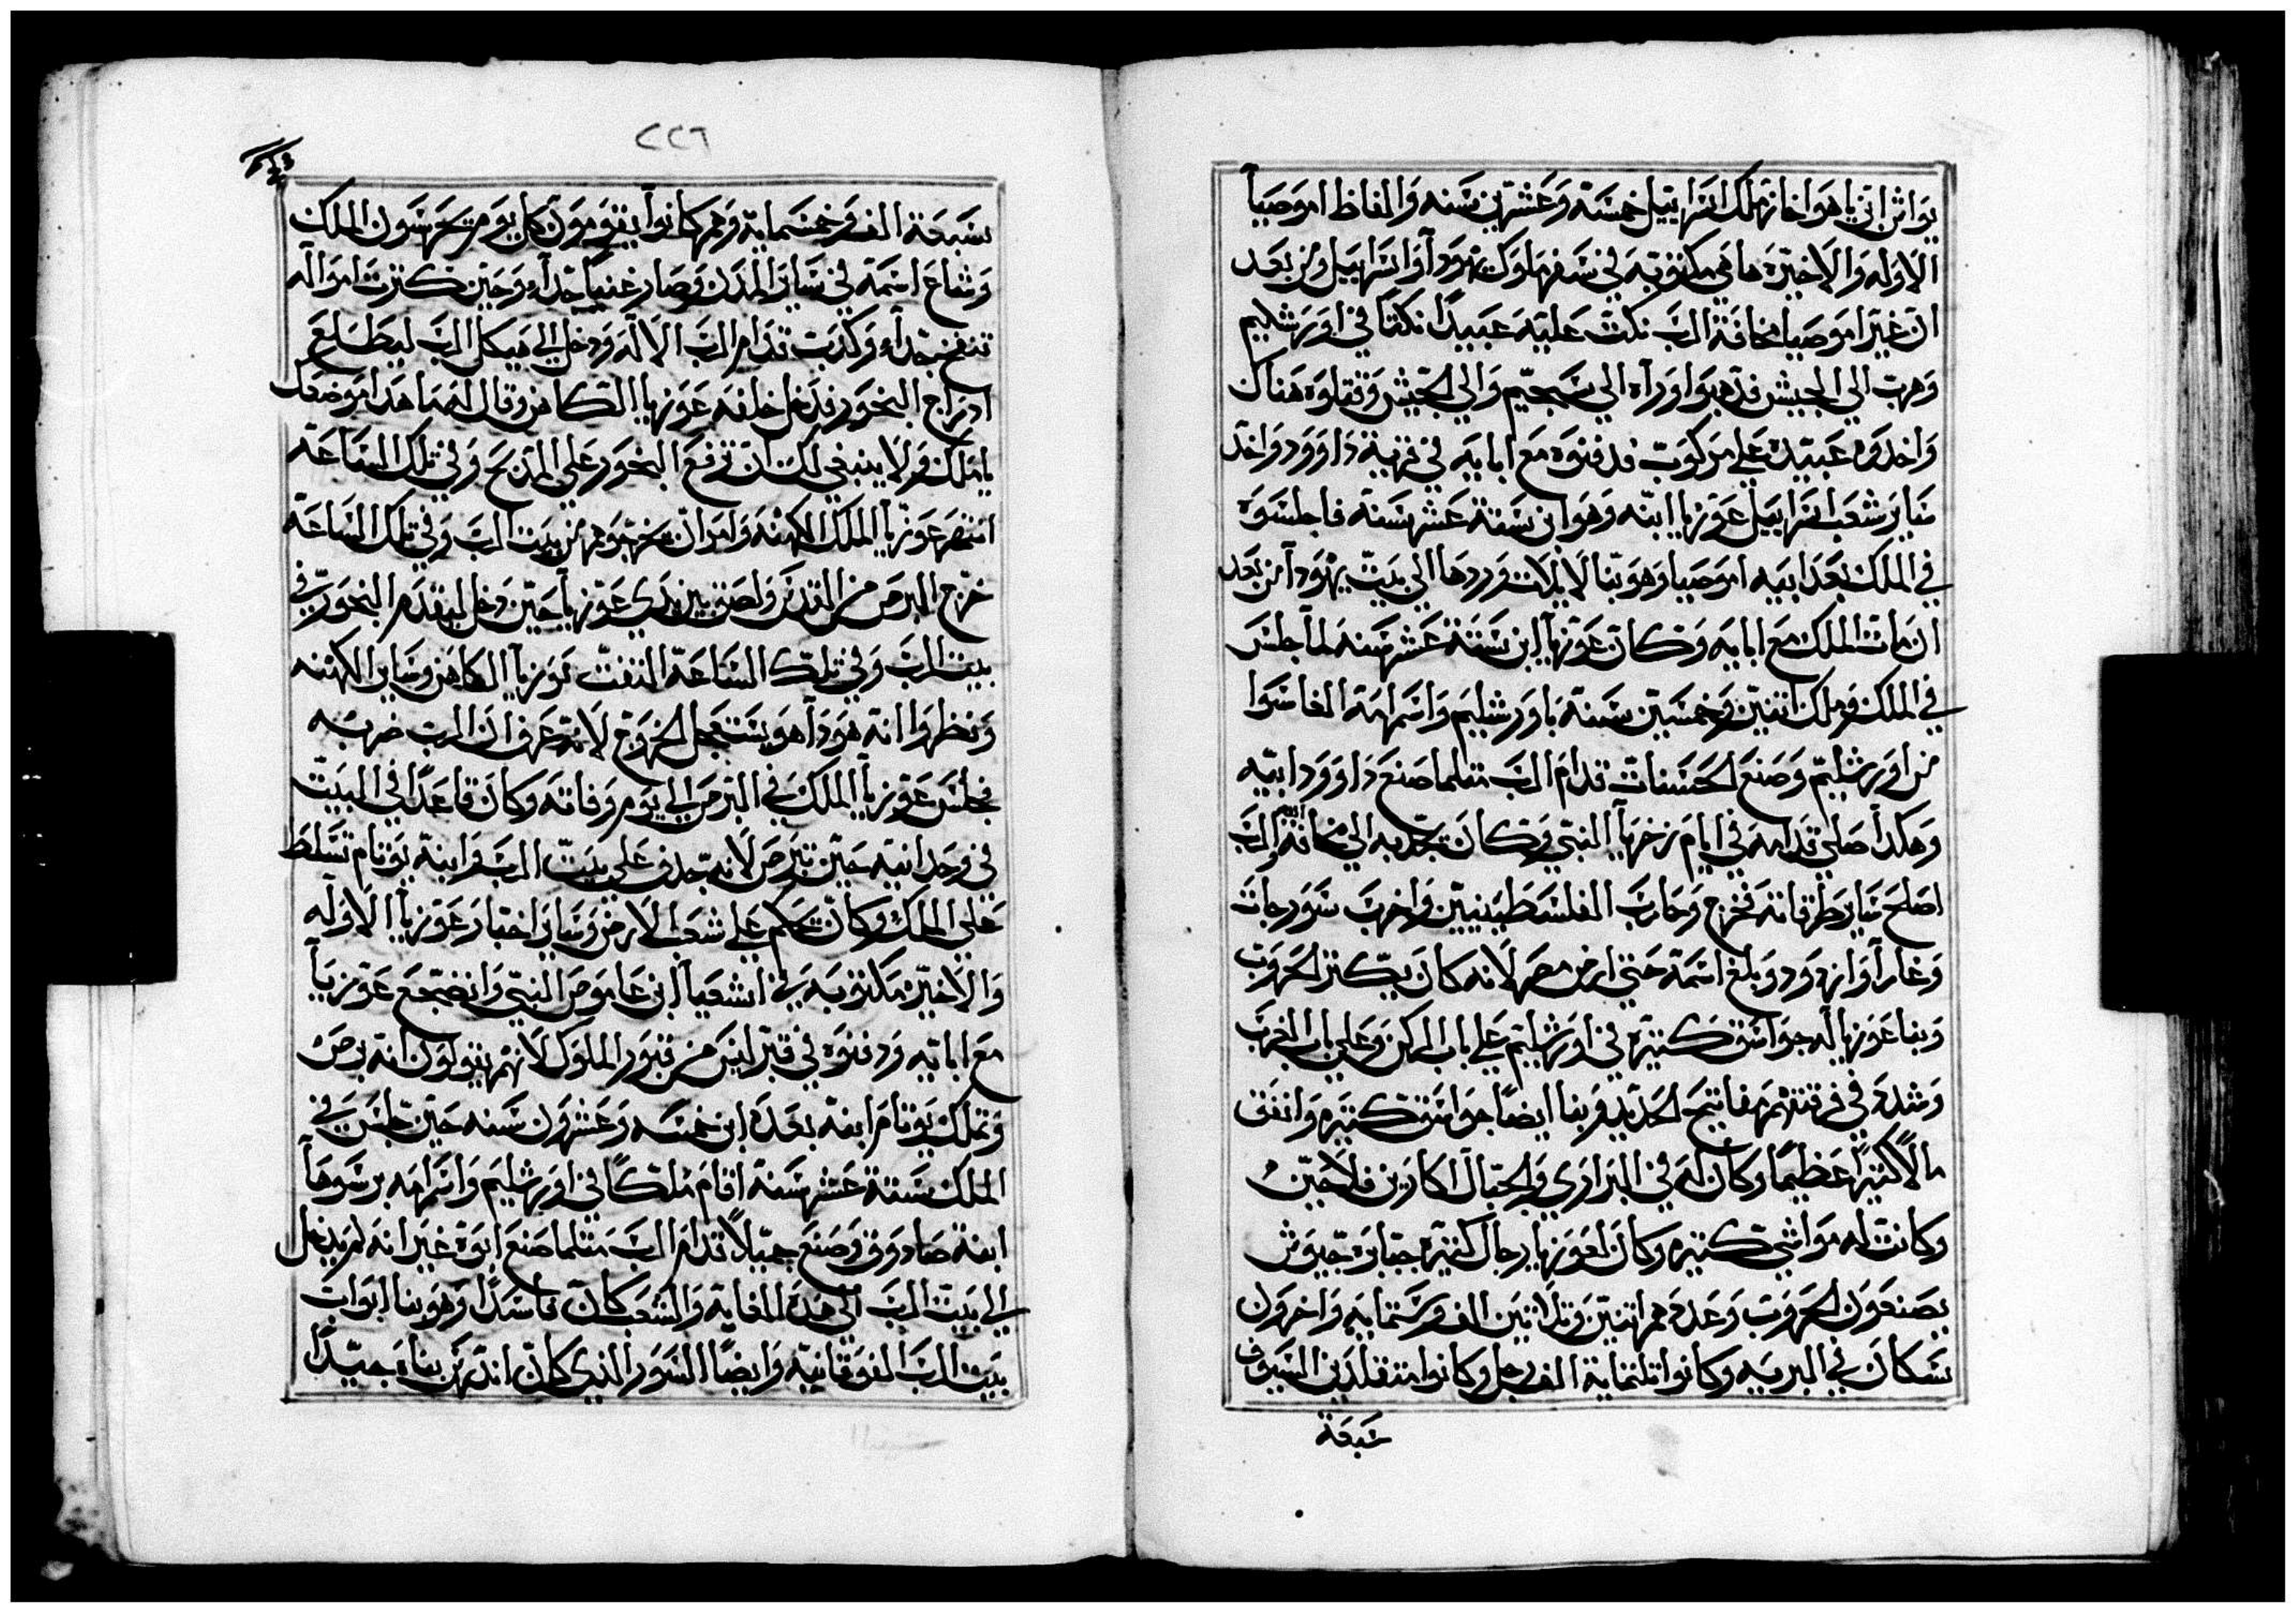 يواش ابن ياهواخاز ملك اسراييل خمسة وعشرين سنه والفاظ اموصيا
الاوله والاخيره هاهي مكتوبه في سفر ملوك يهودا واسراييل ومن بعد
ان غير اموصيا مخافة الرب نكث عليه عبيده نكثا في اورشليم
وهرب الي الجيش فذهبوا وراه الي الجيش وقتلوه هناك
واخدوه عبيده علي مركوب فدفنوه مع ابايه في قرية داوود واخد
ساير شعب اسراييل عوزيا ابنه وهو ابن ستة عشر سنة فاجلسوه
في الملك بعد ابيه اموصيا وهو بنا لايلات ورددها الي بيت يهودا من بعد
ان مات الملك مع ابايه وكان عوزيا ابن ستة عشر سنه لما جلس
في الملك وملك اثنين وخمسين سنة باورشليم واسم امه
من اورشليم وصنع الحسنات قدام الرب مثلما صنع داوود ابيه
وهكدا صلي قدامه في ايام زخريا النبي وكان يجديه الي مخافة الرب
اصلح ساير طرقاته فخرج وحارب الفلسطينيين واخرب سورجات
وبلغ اسمه حتي ارض مصر لانه كان يكثر الحروب
وبنا عوزيا له جواسق كثيره في اورشليم علي باب الركن وعلي باب الخرب
وبنا ايضا جواسق كثيره وانفق
مالا كثيرا عظيما وكان له في البراري والجبال اكارين فلاحين
وكانت له مواشي كثيره وكان لعوزيا رجال كثيرة جبابرة جيوش
يصنعون الحروب وعددهم اثنين وثلاثين الف وستمايه واخرون
سكان في البريه وكانوا ثلثماية الف رجل وكانوا متقلدين السيوف
سبعة
٢٢٦
سبعة الف وخمسماية وهم كانوا يقومون كل يوم يحرسون الملك
وشاع اسمه في ساير المدن وصار غنيا جدا وحين كثرت امواله
جدا وكدب قدام الرب الاله ودخل الي هيكل الرب ليطلع
ادراج البخور فدخل خلفه عوزيا الكاهن وقال له ما هدا موضعك
يا ملك ولا ينبغي لك ان ترفع البخور علي المدبح وفي تلك الساعة
انتهر عوزيا الملك الكهنه وامر ان يخرجوهم من بيت الرب وفي تلك الساعة
خرج البرص من القدس ولصق بين يدي عوزيا حين دخل ليقدم البخور في
بيت الرب وفي تلك الساعة التفت عوزيا الكاهن وساير الكهنه
ونظروا انه هودا هو يستعجل الخروج لانه عرف ان الرب ضربه
فجلس عوزيا الملك في البرص الي يوم وفاته وكان قاعدا في البيت
في وحدانيه حين تبرص لانه جدف علي بيت الرب وابنه يوثام تسلط
علي الملك وكان يحكم علي شعب الارض وساير اخبار عوزيا الاوله
والاخيره مكتوبه في اشعيا ابن عاموص النبي وانضجع عوزيا
مع ابايه ودفنوه في قبر ليس من قبور الملوك لانهم يقولون انه برص
وتملك يوثام ابنه بعده ابن خمسه وعشرون سنه حين جلس في
الملك ستة عشر سنة اقام ملكا في اورشليم واسم امه يرسوها
ابنة صادوق وصنع جميلا قدام الرب مثلما صنع ابوه غير انه لم يدخل
الي بيت الرب الي هده الغاية والشعب كان فاسدا وهو بنا ابواب
بيت الرب الفوقانيه وايضا السور الذي كان اندثر بناه جيدا